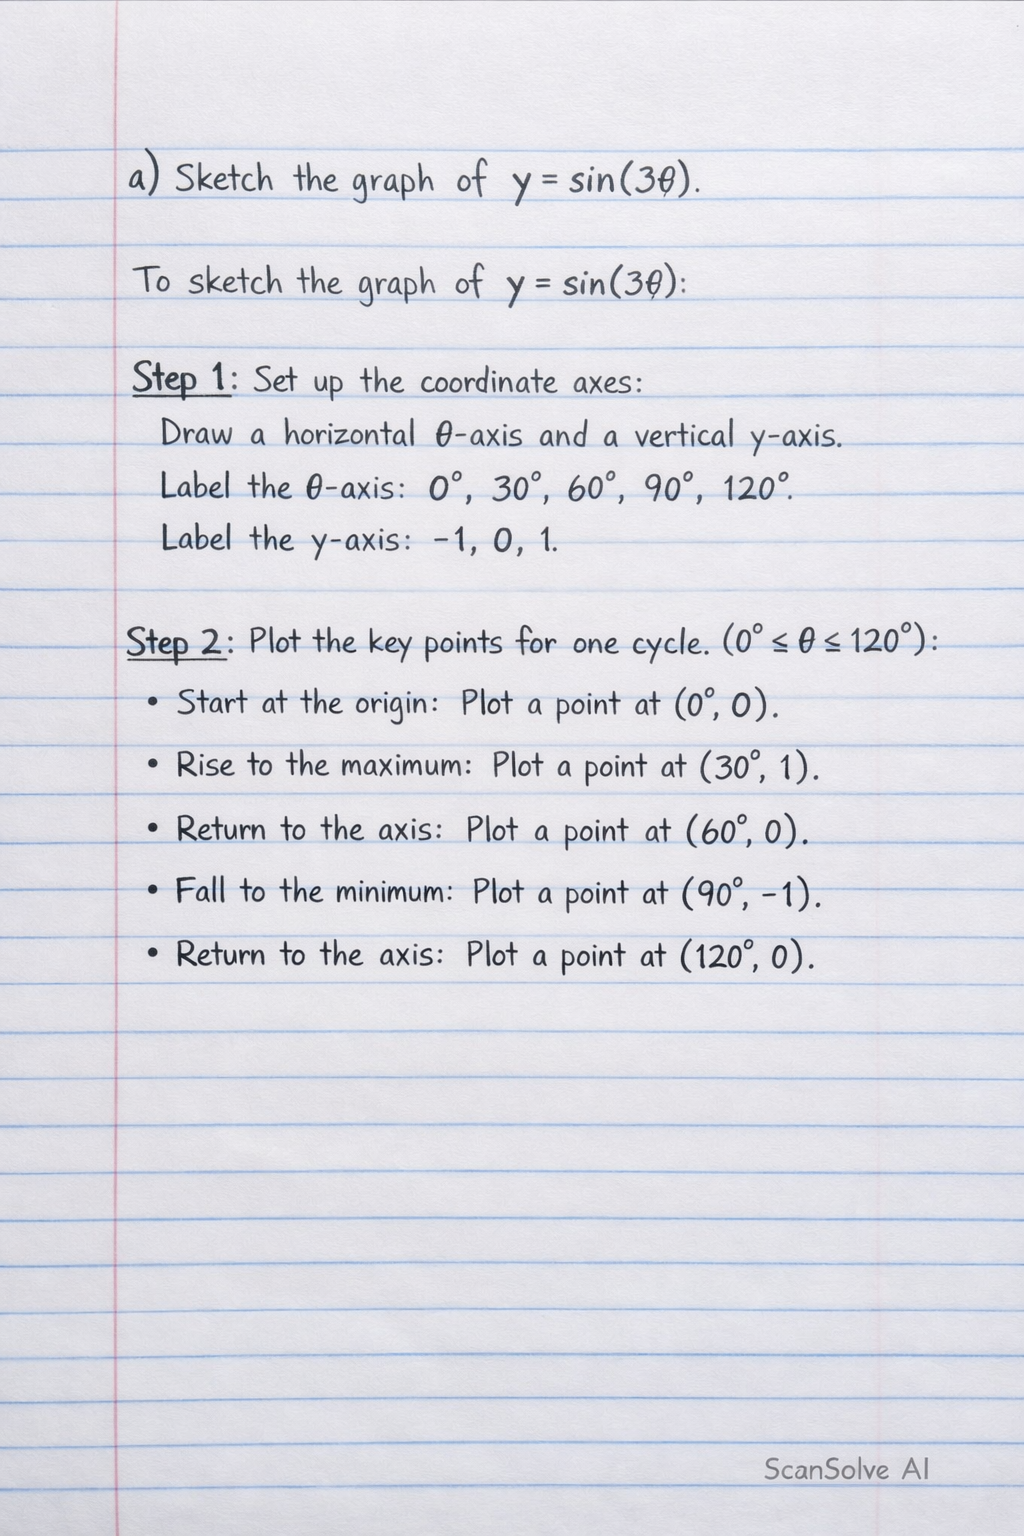 a) Sketch the graph of y = sin(3θ).
To sketch the graph of y = sin(3θ):
Step 1: Set up the coordinate axes:
Draw a horizontal θ-axis and a vertical y-axis.
Label the θ-axis: 0°, 30°, 60°, 90°, 120°.
Label the y-axis: -1, 0, 1.
Step 2: Plot the key points for one cycle. (0° ≤ θ ≤ 120°):
• Start at the origin: Plot a point at (0°, 0).
• Rise to the maximum: Plot a point at (30°, 1).
• Return to the axis: Plot a point at (60°, 0).
• Fall to the minimum: Plot a point at (90°, -1).
• Return to the axis: Plot a point at (120°, 0).
ScanSolve AI